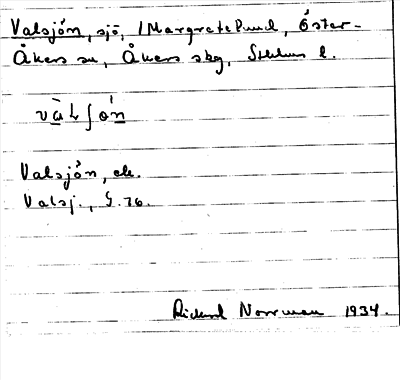 Valsjön, sjö, i Margretelund, Öster-
Åkers sn, Åkers skg, Sthlms l.
vàLʃón
Valsjön, ek.
Valsj., G. 76.
Rickard Norrman 1934.